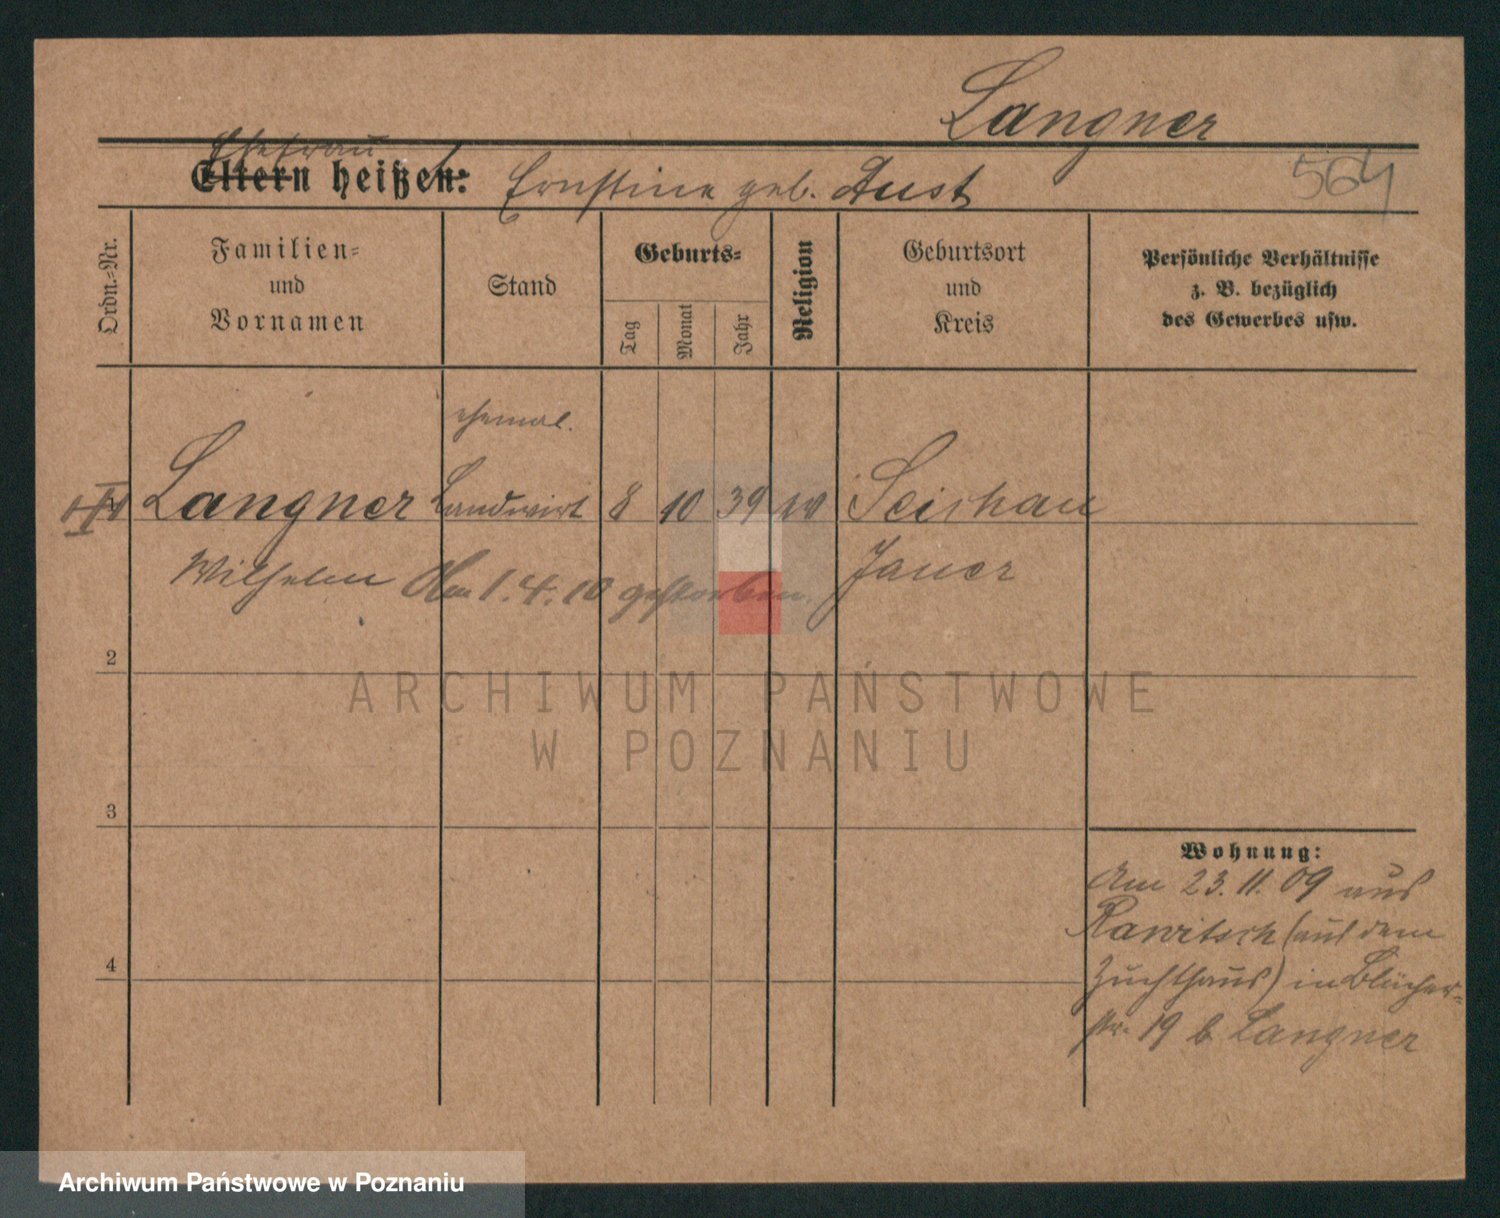 Langner
Ehefrau
Eltern heißen: Ernstine geb. Aust
564
Ordn.-Nr.
Familien-
und
Vornamen
Stand
Geburts-
Tag
Monat
Jahr
Religion
Geburtsort
und
Kreis
Persönliche Verhältnisse
z. B. bezüglich
des Gewerbes usw.
ehemal.
Langner Landwirt 8 10 39 Seichau
Wilhelm Am 1. 4. 10 gestorben. Jauer
2
ARCHIWUM PAŃSTWOWE
W POZNANIU
3
Wohnung:
Am 23. 11. 09 aus
Rawitsch (aus dem
4
Zuchthaus) in Blücher-
str. 19 b Langner
Archiwum Państwowe w Poznaniu